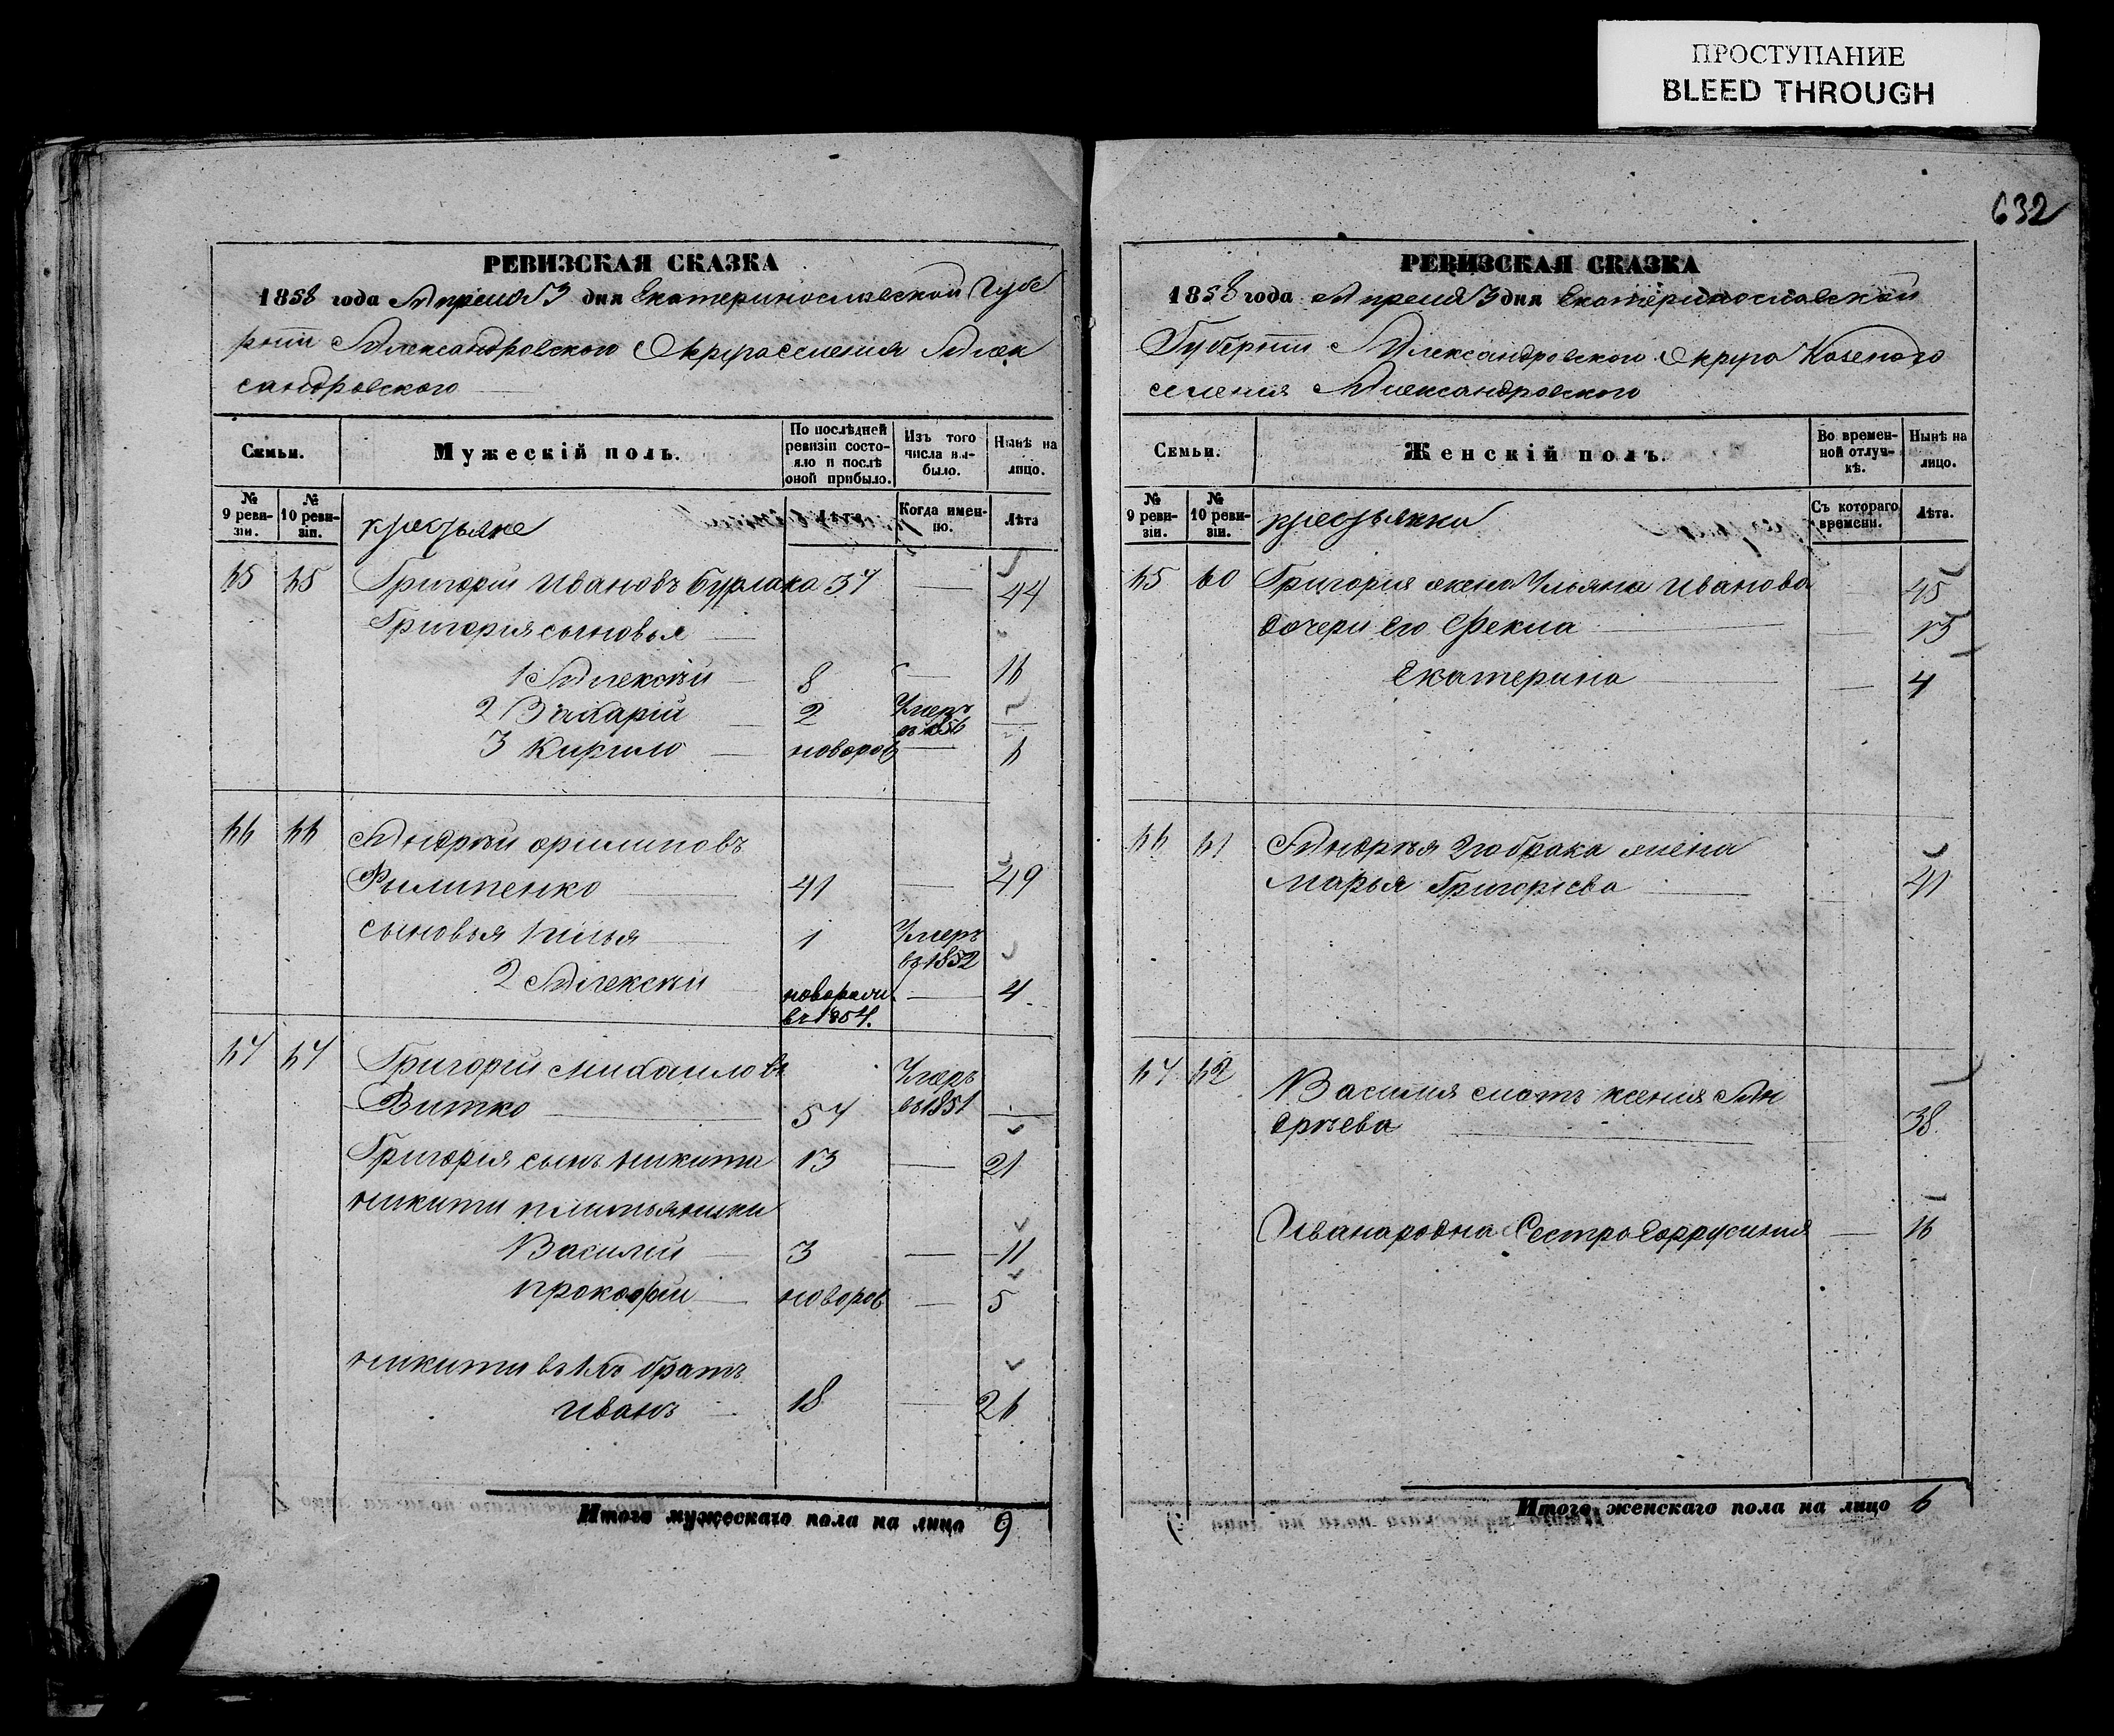 ПРОСТУПАНИЕ
BLEED THROUGH
632
РЕВИЗСКАЯ СКАЗКА
1858 года Апреля 3 дня Екатеринославской Губе
рнии Александровского Округа селения Алек
сандровского
Семьи.
Мужескій полъ.
По послѣдней ревизіи состояло и послѣ оной прибыло.
Изъ того числа выбыло.
Нынѣ на лицо.
№ 9 ревизіи.
№ 10 ревизіи.
крестьяне
Когда именно.
Лѣта
65 65 Григорій Ивановъ Бурлака 37 — 44
Григорія сыновья
1 Алексѣй 8 — 16
2 Захарій 2 Умеръ въ 1856 —
3 Кирило новорож — 6
66 66 Андрѣй Филиповъ
Филипенко 41 — 49
сыновья 1 Илья 1 Умеръ въ 1852
2 Алексѣй новорожд въ 1854. — 4
67 67 Григорій Михаиловъ
Витко 57 Умеръ въ 1851 —
Григорія сынъ Никита 13 — 21
Никити племьяники
Василій 3 — 11
Прокофій новорож — 5
Никити братъ
Иванъ 18 — 26
Итого мужескаго пола на лицо 9
РЕВИЗСКАЯ СКАЗКА
1858 года Апреля 3 дня Екатеринославской
Губернии Александровского Округа Казеного
селения Александровского
Семьи.
Женскій полъ.
Во временной отлучкѣ.
Нынѣ на лицо.
№ 9 ревизіи.
№ 10 ревизіи.
крестьянки
Съ котораго времени.
Лѣта.
65 60 Григория жена Ульяна Иванова 45
дочери его Фекла — 15
Екатерина — 4
66 61 Андрѣя 2го брака жена
Марья Григорьева 41
67 62 Василия мать Ксения Ан
дрѣева 38
Ивана родна Сестра Евфрусиния — 16
Итого женскаго пола на лицо 6